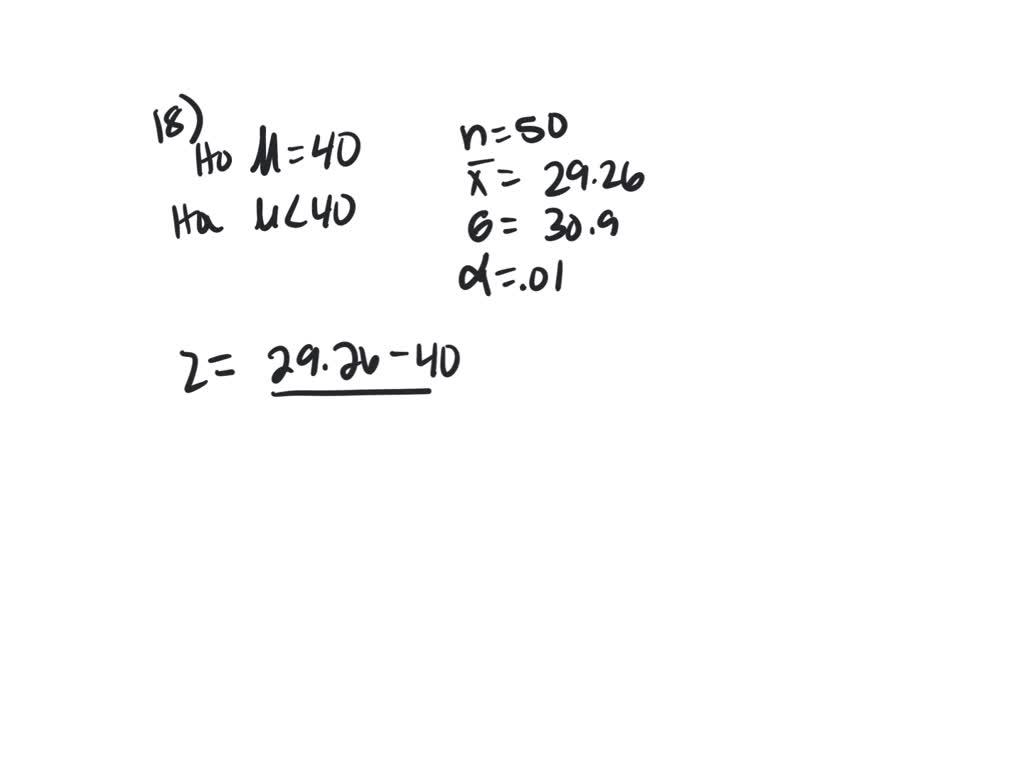 18)
Ho μ=40
Ha μ<40
n=50
x̄ = 29.26
σ = 30.9
α=.01
z= 29.26-40